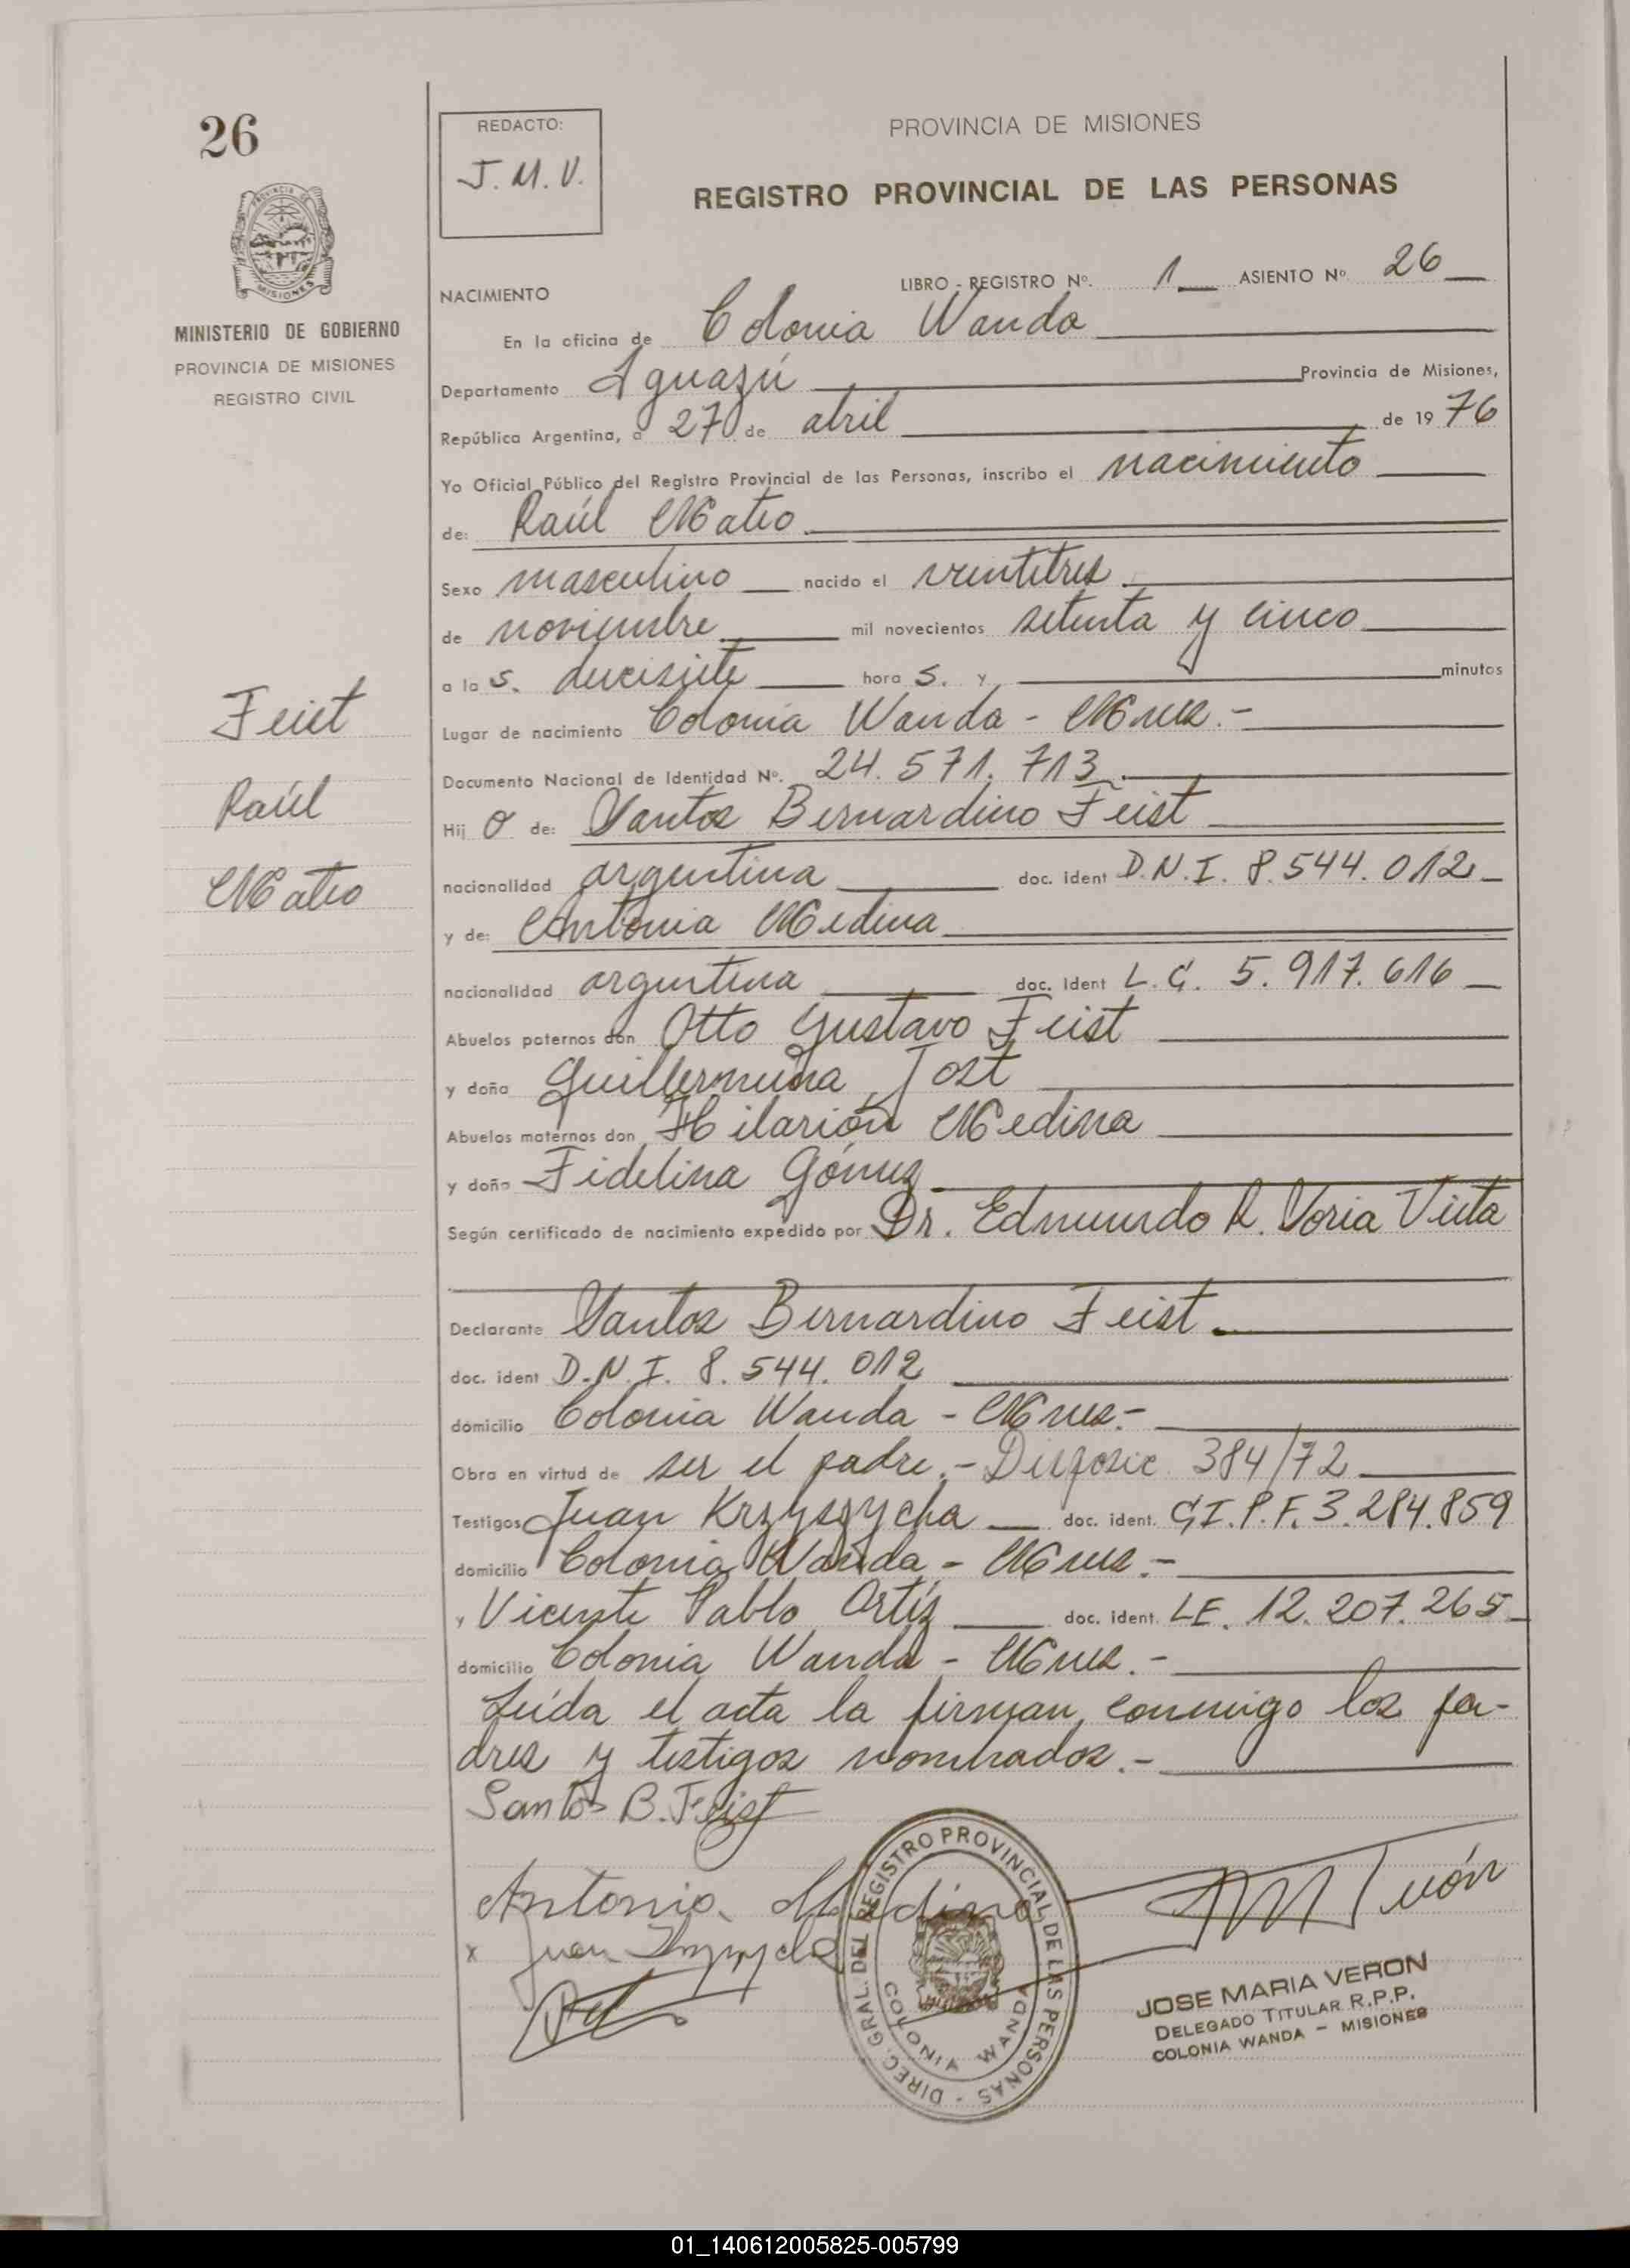 26
REDACTO:
J. M. V.
PROVINCIA DE MISIONES
REGISTRO PROVINCIAL DE LAS PERSONAS
MISIONES
MINISTERIO DE GOBIERNO
PROVINCIA DE MISIONES
REGISTRO CIVIL
NACIMIENTO
LIBRO - REGISTRO Nº. 1 ASIENTO Nº 26
En la oficina de Colonia Wanda
Departamento Iguazú Provincia de Misiones,
República Argentina, a 27 de abril de 1976
Yo Oficial Público del Registro Provincial de las Personas, inscribo el nacimiento
de: Raúl Mateo
Sexo masculino nacido el veintitres
de noviembre mil novecientos setenta y cinco
a las. diecisiete horas. y minutos
Lugar de nacimiento Colonia Wanda - Mnes.-
Documento Nacional de Identidad Nº. 24.571.713
Hijo de: Santos Bernardino Feist
nacionalidad argentina doc. ident D.N.I. 8.544.012
y de: Antonia Medina
nacionalidad argentina doc. ident L.C. 5.917.616
Abuelos paternos don Otto Gustavo Feist
y doña Guillermina Jost
Abuelos maternos don Hilarión Medina
y doña Fidelina Gómez
Según certificado de nacimiento expedido por Dr. Edmundo R. Voria
Declarante Santos Bernardino Feist.
doc. ident D.N.I. 8.544.012
domicilio Colonia Wanda - Mnes.-
Obra en virtud de ser el padre.- Disposic. 384/72
Testigos Juan Krzyszycha doc. ident. C.I.P.F. 3.284.859
domicilio Colonia Wanda - Mnes.-
y Vicente Pablo Ortíz doc. ident. LE. 12.207.265
domicilio Colonia Wanda - Mnes.-
Leída el acta la firman conmigo los pa-
dres y testigos nombrados.-
Feist
Raúl
Mateo
Santos B. Feist
Antonia Medina
x Juan
DIREC. GRAL. DEL REGISTRO PROVINCIAL DE LAS PERSONAS -
COLONIA WANDA
JOSE MARIA VERON
DELEGADO TITULAR R.P.P.
COLONIA WANDA - MISIONES
01_140612005825-005799